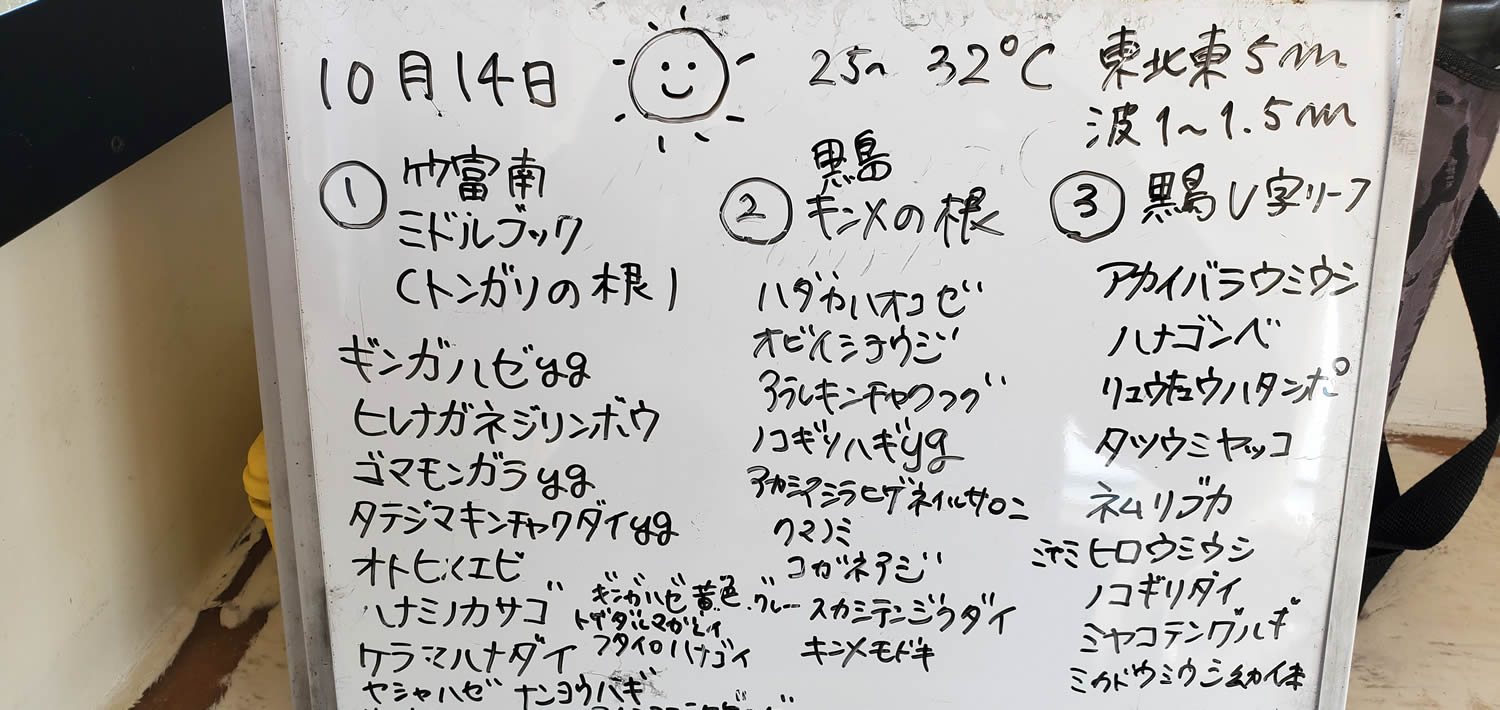 10月14日 25~32℃ 東北東5m
波1~1.5m
① 竹富南
ミドルブック
(トンガリの根)
ギンガハゼyg
ヒレナガネジリンボウ
ゴマモンガラyg
タテジマキンチャクダイyg
オトヒメエビ
ハナミノカサゴ
ケラマハナダイ
ヤシャハゼ ナンヨウハギ
ギンガハゼ黄色.グレー
トゲダルマガレイ
フタイロハナゴイ
② 黒島
キンメの根
ハダカハオコゼ
オビイシヨウジ
アラレキンチャクフグ
ノコギリハギyg
アカシマシラヒゲ
クマノミ
コガネアジ
スカシテンジクダイ
キンメモドキ
③ 黒島V字リーフ
アカイバラウミウシ
ハナゴンベ
リュウキュウハタンポ
タツウミヤッコ
ネムリブカ
ミナミヒロウミウシ
ノコギリダイ
ミヤコテングハギ
ミカドウミウシ幼体